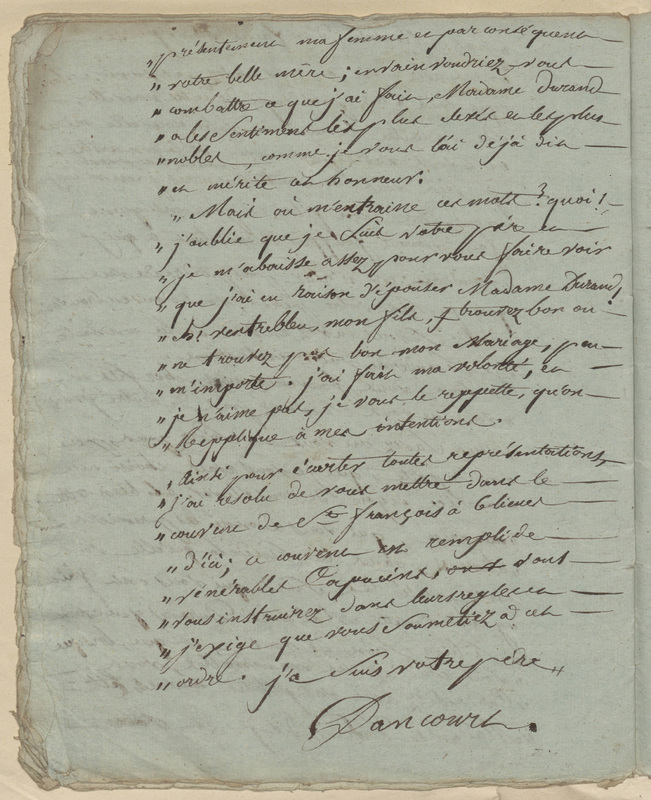 " présentement ma femme et par conséquent
" votre belle mère; envain voudriez-vous
" combattre ce que j'ai fait, Madame Durand
" a les sentiments les plus élevés et les plus
" nobles, comme je vous l'ai déjà dit
" en mérite cet honneur.
" Mais où m'entraine ces mots? quoi!
" j'oublie que je suis votre père et
" je m'abaisse assez pour vous faire voir
" que j'ai eu raison d'épouser Madame Durand!
" Eh! ventrebleu, mon fils, trouvez bon ou
" ne trouvez pas bon mon Mariage, peu
" m'importe. j'ai fait ma volonté, et
" je n'aime pas, je vous le reppette, qu'on
" Repplique à mes intentions.
" Ainsi pour écarter toutes représentations,
" j'ai résolu de vous mettre dans le
" couvent de St françois à 6 lieues
" d'ici; ce couvent est rempli de
" vénérables Capucins, vous
" vous instruirez dans leurs regles et
" j'exige que vous soumetiez à cet
" ordre. je suis votre père "
Dancourt.